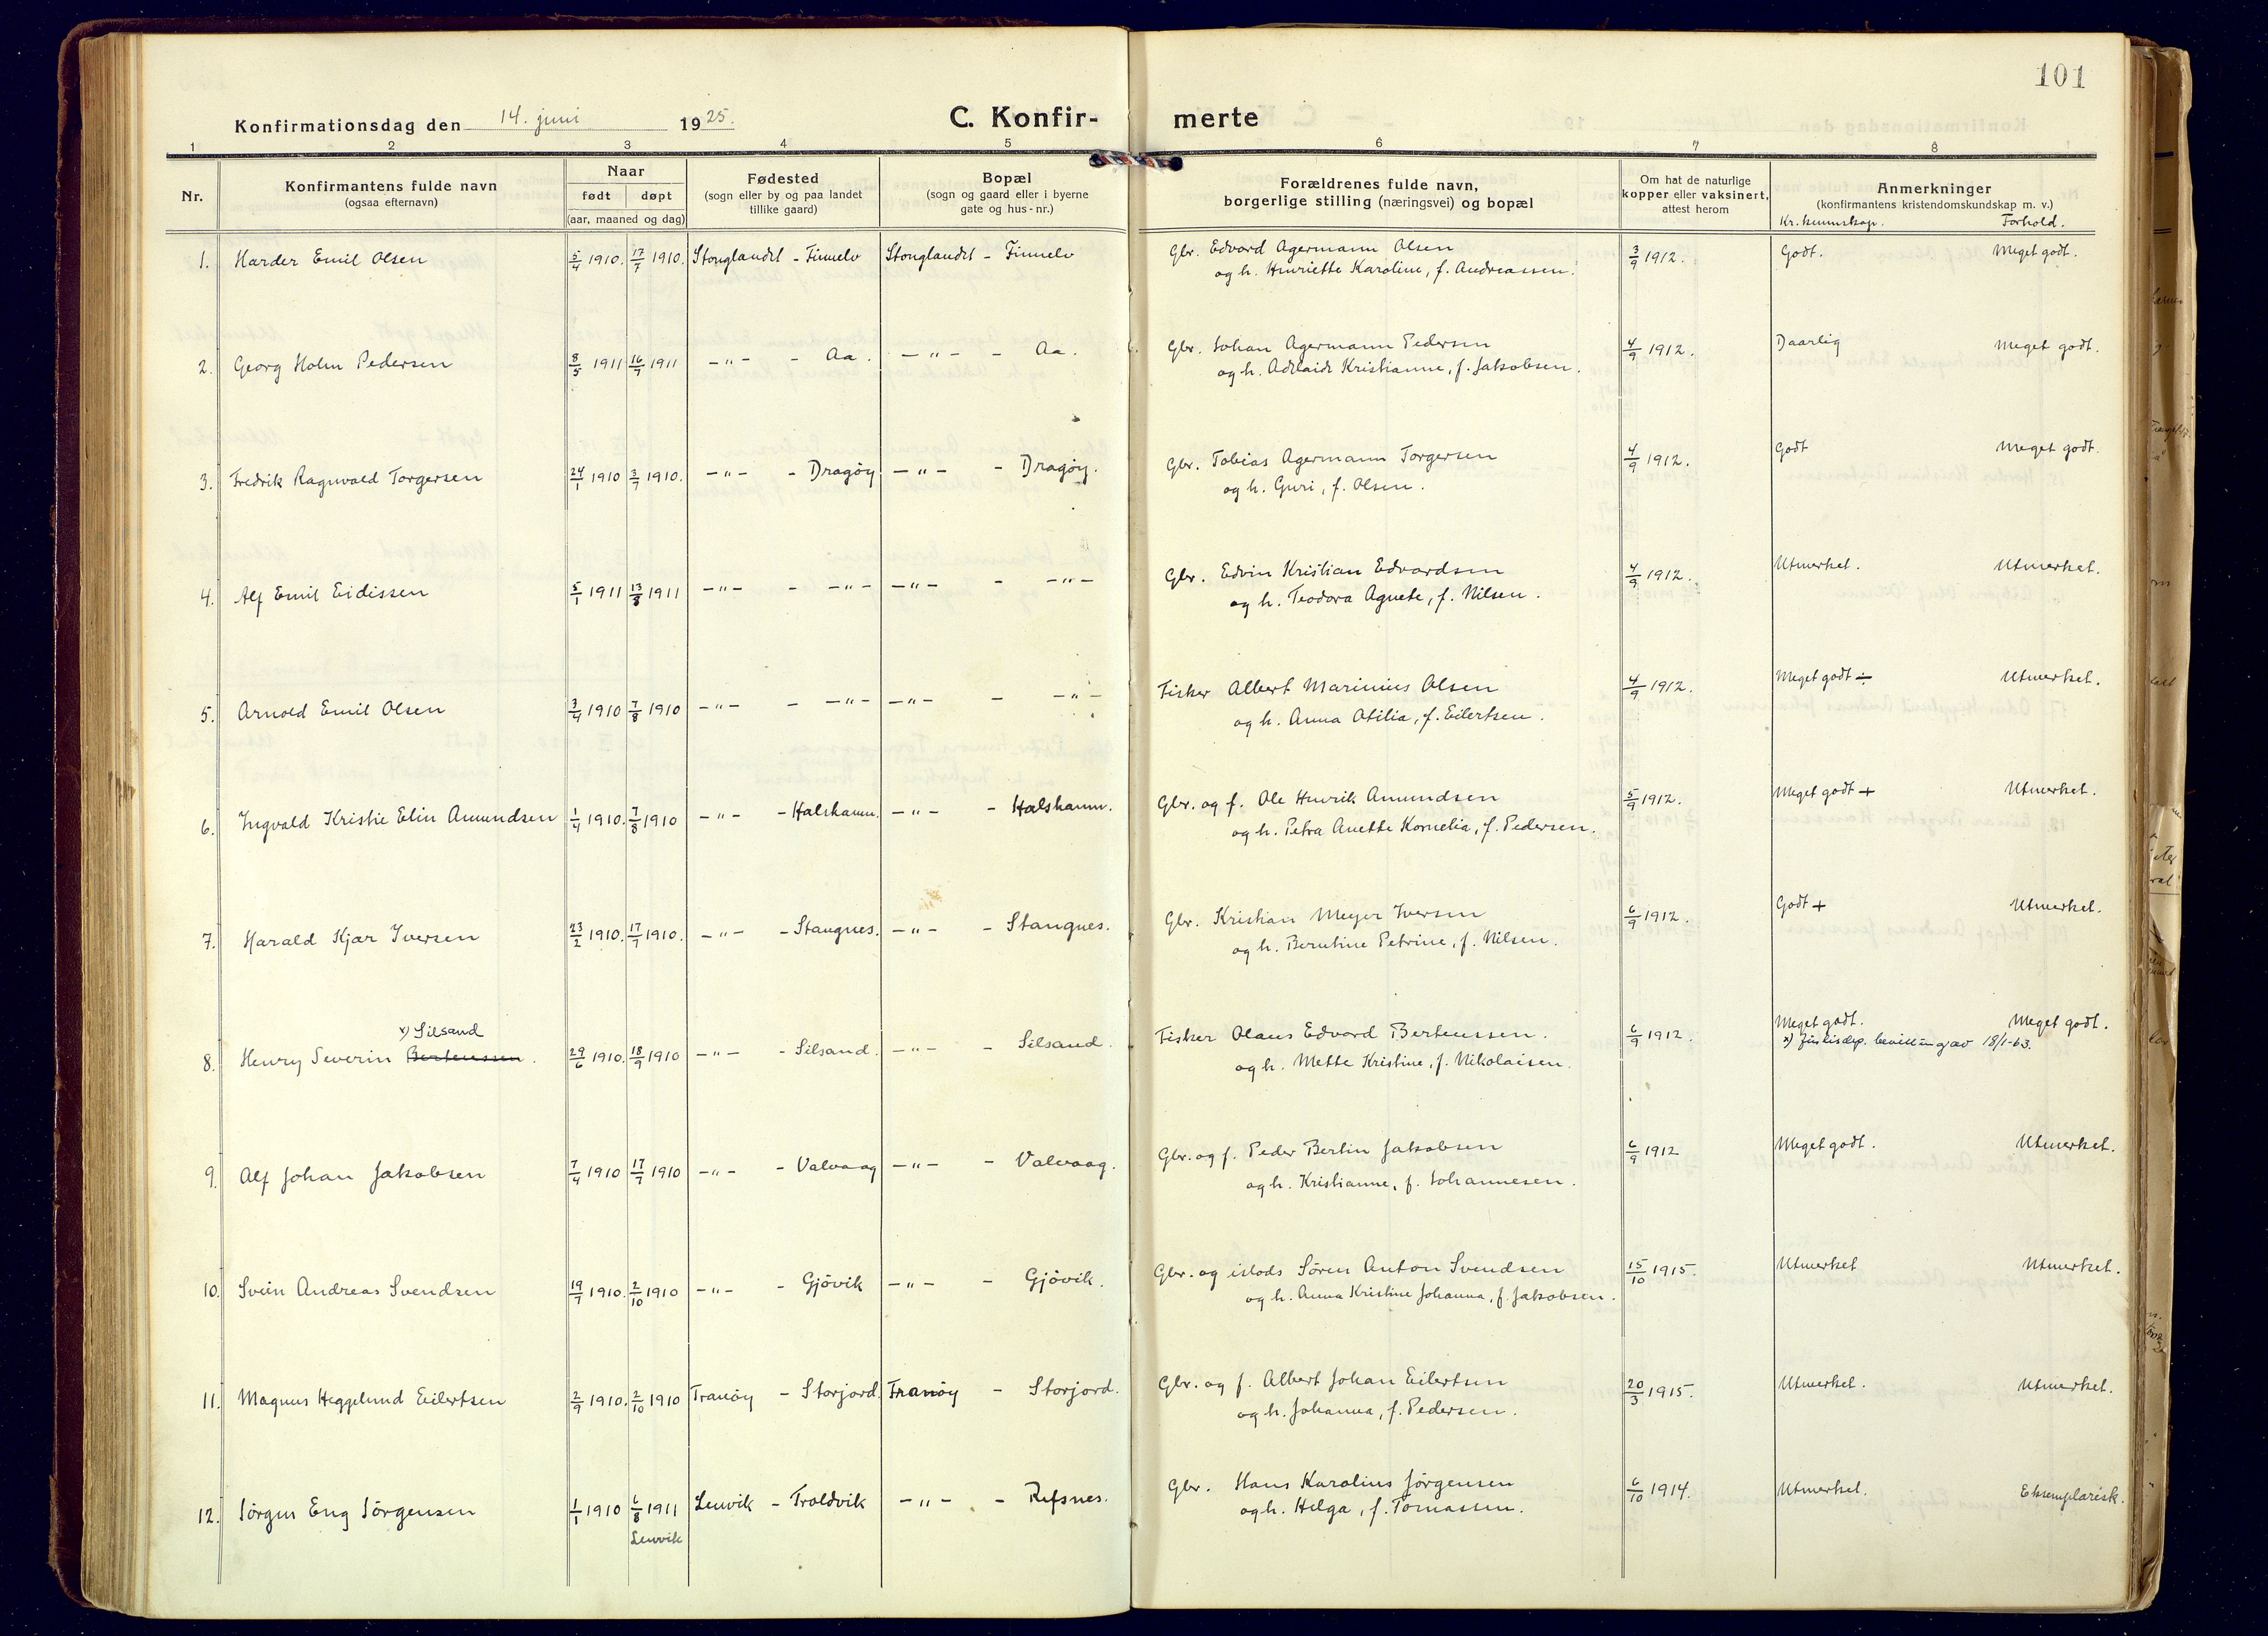 101
Konfirmationsdag den 14. juni 1925. C. Konfir- merte
1 2 3 4 5 6 7 8
Nr. Konfirmantens fulde navn (ogsaa efternavn) Naar født døpt (aar, maaned og dag) Fødested (sogn eller by og paa landet tillike gaard) Bopæl (sogn og gaard eller i byerne gate og hus-nr.) Forældrenes fulde navn, borgerlige stilling (næringsvei) og bopæl Om hat de naturlige kopper eller vaksinert, attest herom Anmerkninger (konfirmantens kristendomskundskap m. v.)
Kr. kunnskap. Forhold.
1. Harder Emil Olsen 5/4 1910. 17/7 1910. Stonglandet - Finnelv Stonglandet - Finnelv Gbr. Edvard Agermann Olsen 3/9 1912. Godt. Meget godt.
og h. Henriette Karoline, f. Andreassen.
2. Georg Holm Pedersen 8/5 1911 16/7 1911 -"- - Aa. -"- - Aa. Gbr. Johan Agermann Pedersen 4/9 1912. Daarlig Meget godt.
og h. Adelaide Kristianne, f. Jakobsen.
3. Fredrik Ragnvald Torgersen 24/1 1910 3/7 1910. -"- - Dragöy -"- - Dragöy. Gbr. Tobias Agermann Torgersen 4/9 1912. Godt Meget godt.
og h. Guri, f. Olsen.
4. Alf Emil Eidissen 5/1 1911 13/8 1911 -"- - -"- -"- - -"- Gbr. Edvin Kristian Edvardsen 4/9 1912. Utmerket. Utmerket.
og h. Teodora Agnete, f. Nilsen.
5. Arnold Emil Olsen 3/4 1910 7/8 1910 -"- - -"- -"- - -"- Fisker Albert Marinius Olsen 4/9 1912. Meget godt ÷ Utmerket.
og h. Anna Otilia, f. Eilertsen.
6. Ingvald Kristie Elin Amundsen 1/4 1910. 7/8 1910 -"- - Halshamn. -"- - Halshamn. Gbr. og f. Ole Henrik Amundsen 5/9 1912. Meget godt + Utmerket.
og h. Petra Anette Kornelia, f. Pedersen.
7. Harald Kjær Iversen 23/2 1910. 17/7 1910. -"- - Stangnes. -"- - Stangnes. Gbr. Kristian Meyer Iversen 6/9 1912. Godt + Utmerket.
og h. Berntine Petrine, f. Nilsen.
x) Silsand
8. Henry Severin Berteussen. 29/6 1910. 18/9 1910 -"- - Silsand. -"- - Silsand. Fisker Olaus Edvard Berteussen. 6/9 1912. Meget godt. Meget godt.
og h. Mette Kristine, f. Nikolaisen. x) Justisdep. bevilling av 18/1-63.
9. Alf Johan Jakobsen 7/4 1910 17/7 1910 -"- - Valvaag -"- - Valvaag. Gbr. og f. Peder Bertin Jakobsen 6/9 1912 Meget godt. Utmerket.
og h. Kristianne, f. Johannesen.
10. Svein Andreas Svendsen 19/7 1910. 2/10 1910 -"- - Gjövik -"- - Gjövik. Gbr. og islods Sören Anton Svendsen 15/10 1915. Utmerket Utmerket.
og h. Anna Kristine Johanna, f. Jakobsen.
11. Magnus Heggelund Eilertsen 2/9 1910. 2/10 1910 Tranöy - Storjord Tranöy - Storjord. Gbr. og f. Albert Johan Eilertsen 20/3 1915. Utmerket. Utmerket.
og h. Johanna, f. Pedersen.
12. Jörgen Eng Jörgensen 1/1 1910 6/8 1911 Lenvik - Troldvik -"- - Refsnes. Gbr. Hans Karolius Jörgensen 6/10 1914. Utmerket. Eksemplarisk.
Lenvik og h. Helga, f. Tomassen.